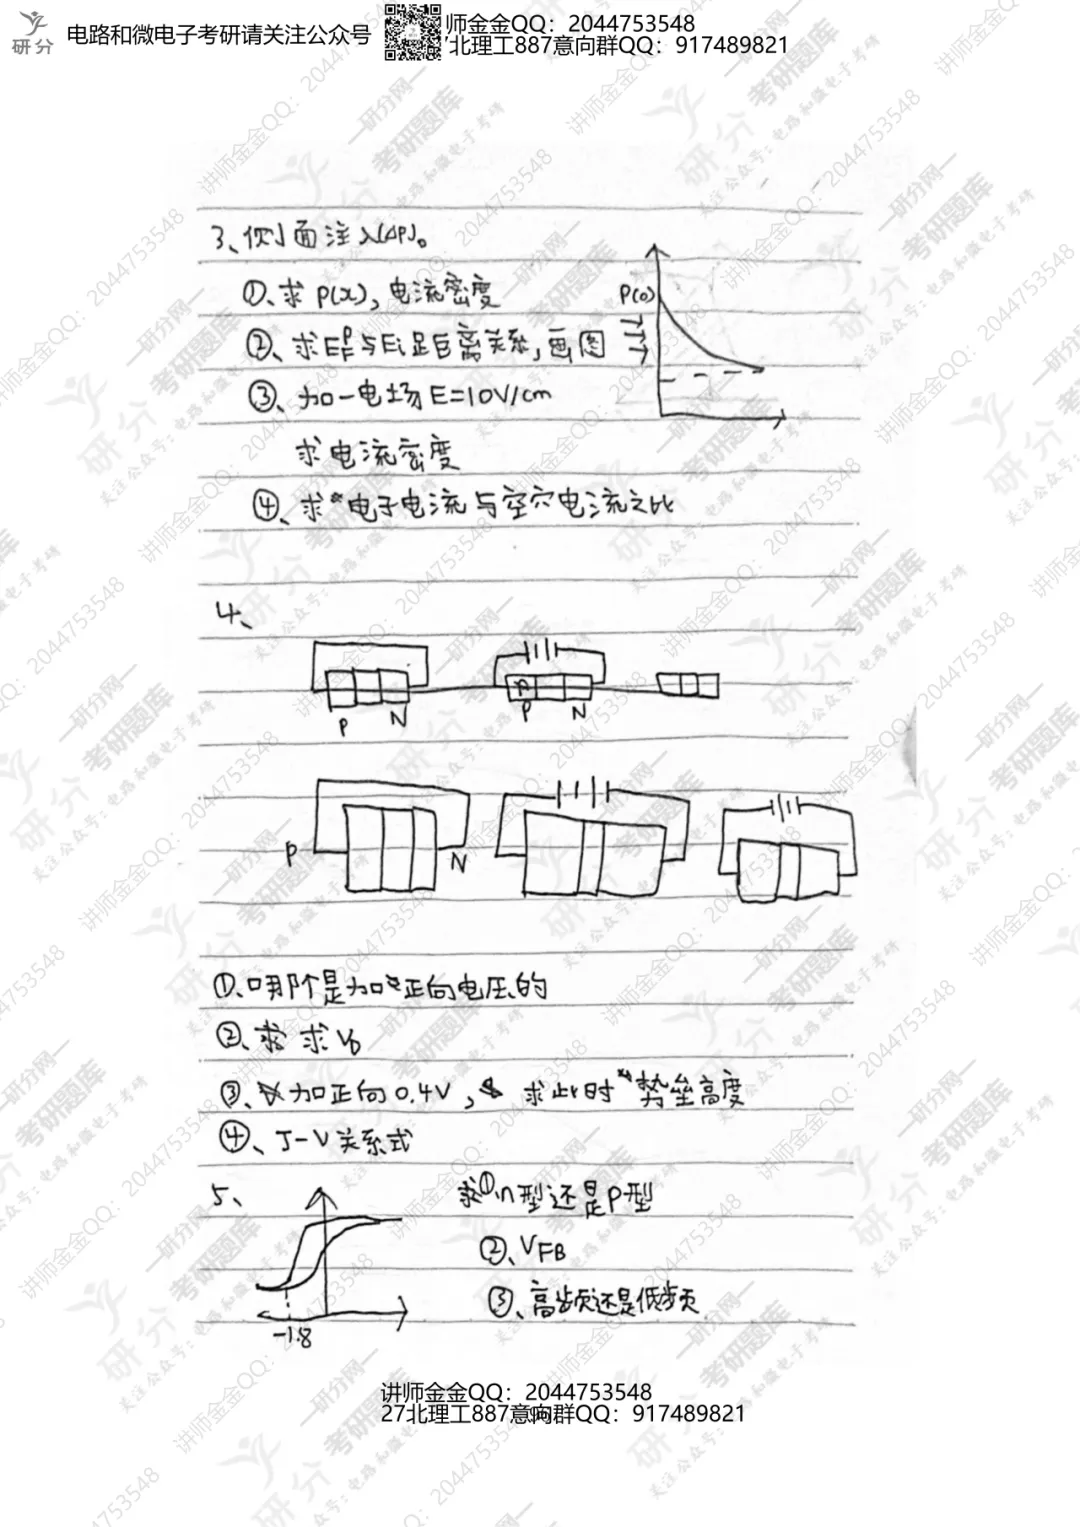 研分
电路和微电子考研请关注公众号
师金金QQ：2044753548
北理工887意向群QQ：917489821
3、侧面注入(ΔP)。
①、求P(x)，电流密度
②、求E_F^P与Ei距离关系，画图
③、加一电场E=10V/cm
求电流密度
④、求电子电流与空穴电流之比
P(0)
4、
P
N
P
N
P
N
①、哪个是加正向电压的
②、求V_D
③、加正向0.4V，求此时势垒高度
④、J-V关系式
5、
求①、n型还是P型
②、V_FB
③、高频还是低频
-1.8
讲师金金QQ：2044753548
27北理工887意向群QQ：917489821